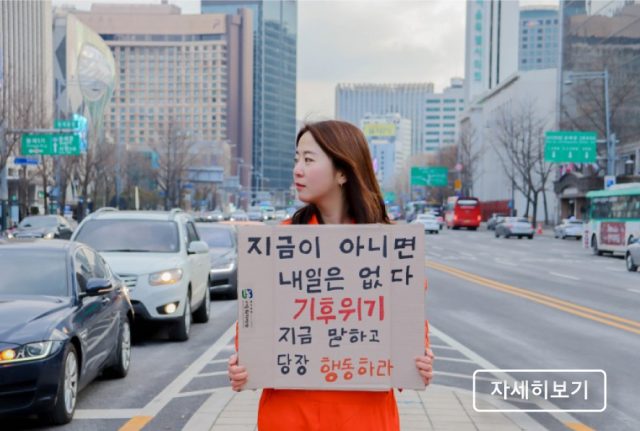 지금이 아니면
내일은 없다
기후위기
지금 말하고
당장 행동하라
자세히보기